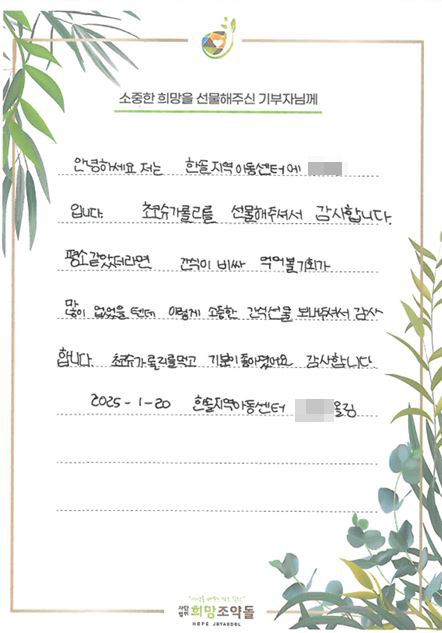 소중한 희망을 선물해주신 기부자님께
안녕하세요 저는 한솔지역아동센터에
입니다. 초코슈가롤리를 선물해주셔서 감사합니다.
평소같았더라면 간식이 비싸 먹어볼기회가
많이 없었을 텐데 이렇게 소중한 간식선물 보내주셔서 감사
합니다. 초코슈가롤리를먹고 기분이좋아졌어요 감사합니다.
2025-1-20 한솔지역아동센터 올림
사단법인 희망조약돌
HOPE JOYAKDOL